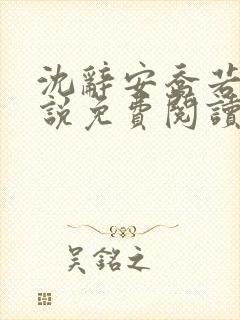 沈辭安喬若
說免費閱讀
吳銘之